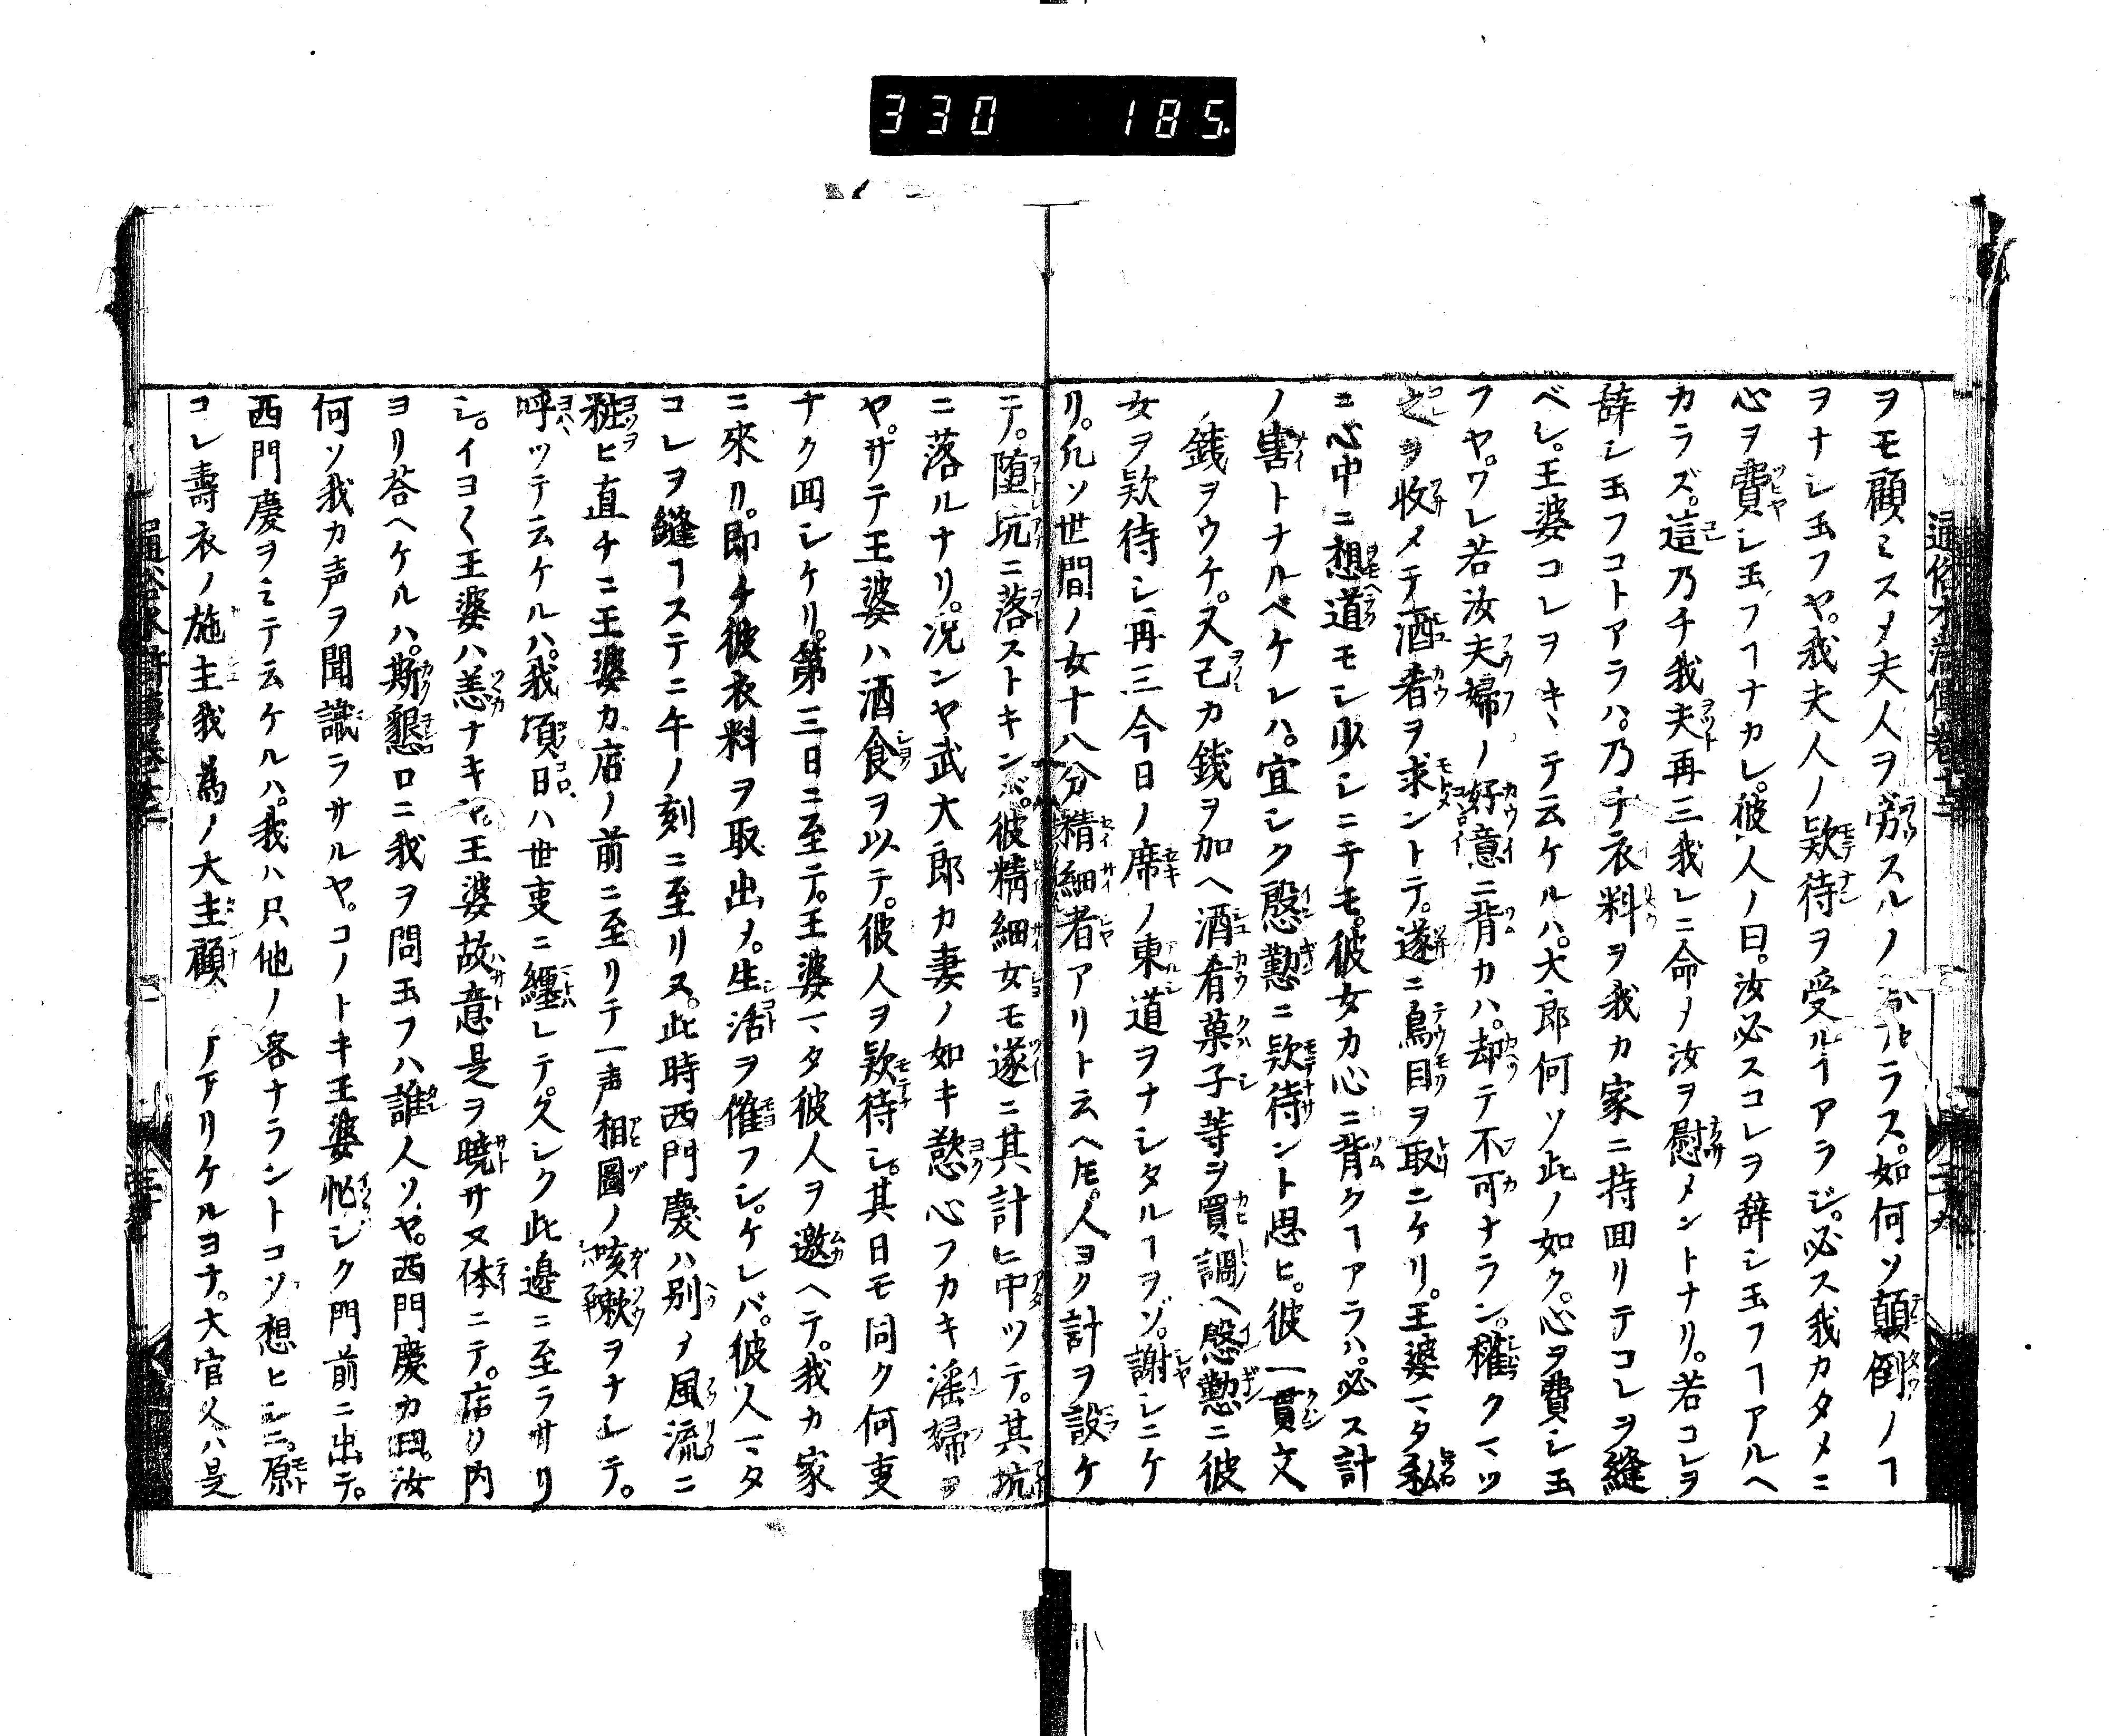 330 185
通俗水滸傳卷十二
ヲモ顧ミスメ夫人ヲ労スルノ ラス。如何ソ顛倒ノヿ
ヲナシ玉フヤ。我夫人ノ欵待ヲ受ルヿアラジ。必ス我カタメニ
心ヲ費シ玉フヿナカレ。彼人ノ曰。汝必スコレヲ辞シ玉フヿアルヘ
カラズ。這乃チ我夫再三我レニ命メ汝ヲ慰メントナリ。若コレヲ
辞シ玉フコトアラハ。乃チ衣料ヲ我カ家ニ持回リテコレヲ縫
ベシ。王婆コレヲキヽテ云ケルハ。大郎何ソ此ノ如ク。心ヲ費シ玉
フヤ。ワレ若汝夫婦ノ好意ニ背カハ。却テ不可ナラン。権クマツ
之ヲ收メテ酒肴ヲ求ントテ。遂ニ鳥目ヲ取ニケリ。王婆マタ私
ニ心中ニ想道モシ少シニテモ。彼女カ心ニ背クヿアラハ。必ス計
ノ害トナルベケレハ。宜シク慇懃ニ欵待ント思ヒ。彼一貫文
ノ銭ヲウケ。又己カ銭ヲ加ヘ酒肴菓子等ヲ買調ヘ慇懃ニ彼
女ヲ欵待シ再三今日ノ席ノ東道ヲナシタルヿヲゾ。謝シニケ
リ。凡ソ世間ノ女十八分精細者アリト云ヘ𪜈。人ヨク計ヲ設ケ
テ。堕坑ニ落ストキンバ。彼精細女モ遂ニ其計ヒ中ツテ。其坑
ニ落ルナリ。况ンヤ武大郎カ妻ノ如キ慾心フカキ淫婦ヲ
ヤ。サテ王婆ハ酒食ヲ以テ。彼人ヲ欵待シ。其日モ同ク何叓
ナク回シケリ。第三日ニ至テ。王婆マタ彼人ヲ邀ヘテ。我カ家
ニ來リ。即チ彼衣料ヲ取出メ。生活ヲ催フシ。ケレバ。彼人マタ
コレヲ縫ヿステニ午ノ刻ニ至リヌ。此時西門慶ハ別メ風流ニ
粧ヒ直チニ王婆カ店ノ前ニ至リテ一声相圖ノ咳嗽ヲナシテ。
呼ツテ云ケルハ。我頃日ハ世叓ニ纏レテ。久シク此邉ニ至ラサリ
シ。イヨ〱王婆ハ恙ナキヤ。王婆故意是ヲ曉サヌ体ニテ。店ノ内
ヨリ荅ヘケルハ。斯懇ロニ我ヲ問玉フハ誰人ソヤ。西門慶カ曰。汝
何ソ我カ声ヲ聞識ラサルヤ。コノトキ王婆忙シク門前ニ出テ。
西門慶ヲミテ云ケルハ。我ハ只他ノ客ナラントコソ想ヒシニ。原
コレ壽衣ノ施主我為ノ大主顧 テアリケルヨナ。大官人ハ是
通俗水滸傳卷十二